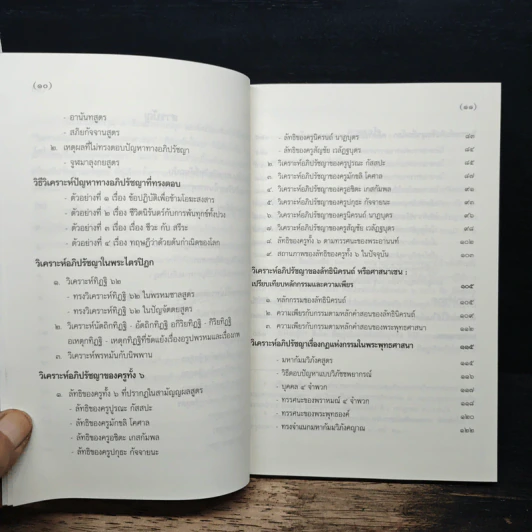 (๑๐)
- อานันทสูตร
- สภิยกัจจานสูตร
๒. เหตุผลที่ไม่ทรงตอบปัญหาทางอภิปรัชญา
- จูฬมาลุงกยสูตร
วิธีวิเคราะห์ปัญหาทางอภิปรัชญาที่ทรงตอบ
- ตัวอย่างที่ ๑ เรื่อง ข้อปฏิบัติเพื่อข้ามโอฆะสงสาร
- ตัวอย่างที่ ๒ เรื่อง ชีวิตนิรันดร์กับการพ้นทุกข์ทั้งปวง
- ตัวอย่างที่ ๓ เรื่อง ชีวะ กับ สรีระ
- ตัวอย่างที่ ๔ เรื่อง ทฤษฎีว่าด้วยต้นกำเนิดของโลก
วิเคราะห์อภิปรัชญาในพระไตรปิฎก
๑. วิเคราะห์ทิฏฐิ ๖๒
- ทรงวิเคราะห์ทิฏฐิ ๖๒ ในพรหมชาลสูตร
- ทรงวิเคราะห์ทิฏฐิ ๖๒ ในปัญจัตตยสูตร
๒. วิเคราะห์นัตถิกทิฏฐิ - อัตถิกทิฏฐิ อกิริยทิฏฐิ - กิริยทิฏฐิ
อเหตุกทิฏฐิ - เหตุกทิฏฐิที่ขัดแย้งเรื่องอรูปพรหมและเรื่องภพ
๓. วิเคราะห์พรหมันกับนิพพาน
วิเคราะห์อภิปรัชญาของครูทั้ง ๖
๑. ลัทธิของครูทั้ง ๖ ที่ปรากฏในสามัญญผลสูตร
- ลัทธิของครูปูรณะ กัสสปะ
- ลัทธิของครูมักขลิ โคศาล
- ลัทธิของครูอชิตะ เกสกัมพล
- ลัทธิของครูปกุธะ กัจจายนะ
(๑๑)
- ลัทธิของครูนิครนถ์ นาฏบุตร ๘๓
- ลัทธิของครูสัญชัย เวลัฏฐบุตร ๘๔
๒. วิเคราะห์อภิปรัชญาของครูปูรณะ กัสสปะ ๘๕
๓. วิเคราะห์อภิปรัชญาของครูมักขลิ โคศาล ๘๗
๔. วิเคราะห์อภิปรัชญาของครูอชิตะ เกสกัมพล
๕. วิเคราะห์อภิปรัชญาของครูปกุธะ กัจจายนะ
๖. วิเคราะห์อภิปรัชญาของครูนิครนถ์ นาฏบุตร
๗. วิเคราะห์อภิปรัชญาของครูสัญชัย เวลัฏฐบุตร
๘. ลัทธิของครูทั้ง ๖ ตามทรรศนะของพระอานนท์ ๑๐๒
๙. สถานภาพของลัทธิของครูทั้ง ๖ ในปัจจุบัน ๑๐๓
วิเคราะห์อภิปรัชญาของลัทธินิครนถ์ หรือศาสนาเชน :
เปรียบเทียบหลักกรรมและความเพียร ๑๐๕
๑. หลักกรรมของลัทธินิครนถ์
๒. ความเพียรกับกรรมตามหลักคำสอนของลัทธินิครนถ์
๓. ความเพียรกับกรรมตามหลักคำสอนของพระพุทธศาสนา
วิเคราะห์อภิปรัชญาเรื่องกฎแห่งกรรมในพระพุทธศาสนา ๑๑๕
- มหากัมมวิภังคสูตร ๑๑๕
- วิธีตอบปัญหาแบบวิภัชชพยากรณ์
- บุคคล ๔ จำพวก
- ทรรศนะของพราหมณ์ ๔ จำพวก ๑๑๘
- ทรรศนะของพระพุทธองค์ ๑๒๐
- ทรงจำแนกมหากัมมวิภังคญาณ ๑๒๒